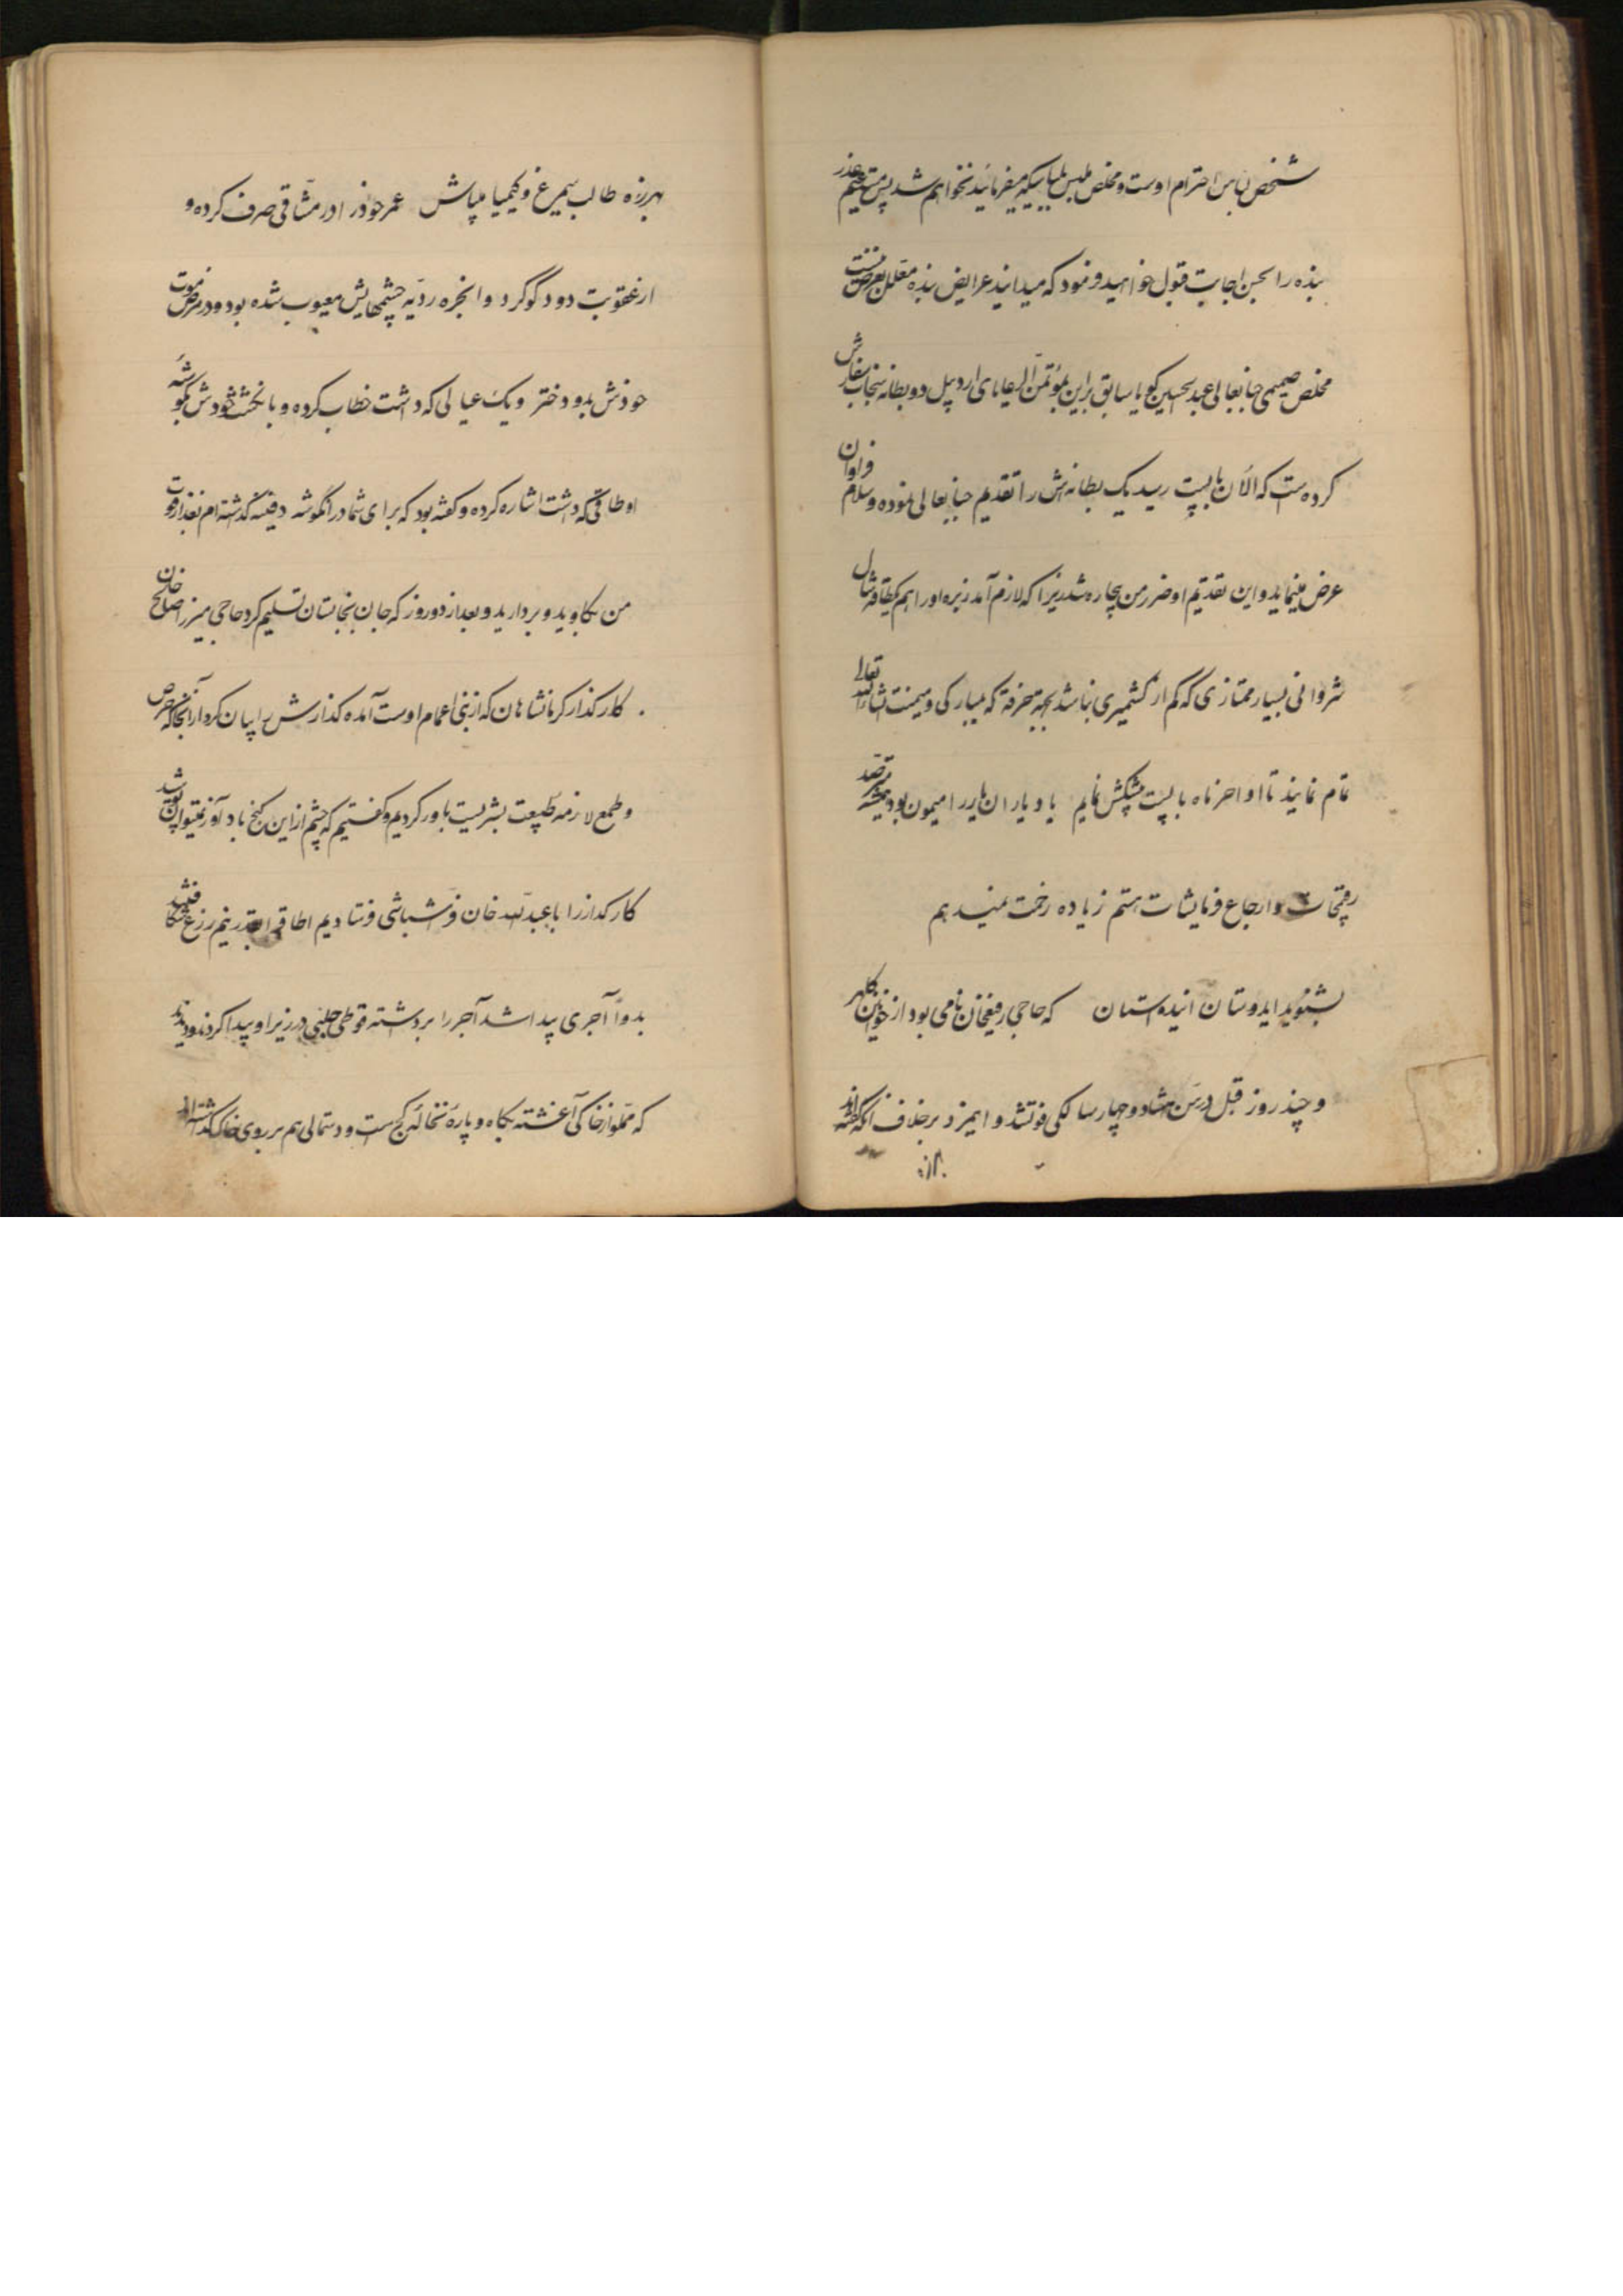 شخص بنا بر احترام اوست و مخلص ملبس بلباسیکه میفرمائید نخواهم شد پس مستدعیم عذر
بنده را بحسن اجابت قبول خواهید فرمود که میدانید عرایض بنده معلل بغرض نیست
مخلص صمیمی جنابعالی عبدالحسین گویا سابق براین بمؤتمن الرعایای اردبیل دو بطانه سنجاب سفارش
کرده‌ست که الآن با پست رسید یک بطانه‌اش را تقدیم جنابعالی نموده و سلام فراوان
عرض مینماید و این تقدیم او ضرر من بیچاره شد زیرا که لازم آمد زیره او را هم یکطاقه شال
شروانی بسیار ممتازی که کم از کشمیری نباشد بجهة خرقه که بمبارکی و میمنت انشاءالله تعالی
تمام نمایند تا اواخر ماه با پست پیشکش نمایم یا و یاران یار را میمون بود همیشه مترصد
رقیمجات و ارجاع فرمایشات هستم زیاده زحمت نمیدهم
بشنوید ایدوستان این داستان که حاجی رفیعخان نامی بود از خوانین کلهر
و چند روز قبل در سن هشتاد و چهار سالگی فوتشد و این مرد برخلاف آنکه گفته‌اند
بهرزه طالب سیمرغ و کیمیا میباش عمر خود را در مشاقی صرف کرده و
از عقوبت دود گوگرد و ابخره ردیه چشمهایش معیوب شده بود و در مرض موت
خودش بدو دختر و یک عیالی که داشت خطاب کرده و با انگشت خودش بگوشه
اوطاقی که داشت اشاره کرده و گفته بود که برای شما در آنگوشه دفینه گذاشته‌ام بعد از فوت
من بکاوید و بردارید و بعد از دو روز که جان بجانستان تسلیم کرد حاجی میرزا صالح خان
کارگذار کرمانشاهان که از بنی اعمام اوست آمده گذارش را بیان کرد از آنجا که حرص
و طمع لازمه طبیعت بشریست باور کردیم و گفتیم که چشم از این گنج باد آورد نمیتوان پوشید
کارگذار را با عبدالله خان فراشباشی فرستادیم اطاق را بقدر نیم زرع شکافتند
بدواً آجری پیدا شد آجر را برداشته قوطی حلبی در زیر او پیدا کردند و دیدند
که مملو از خاکی آغشته بکاه و پاره نخاله گچ است و دستمالی هم بر روی خاک گذاشته‌اند